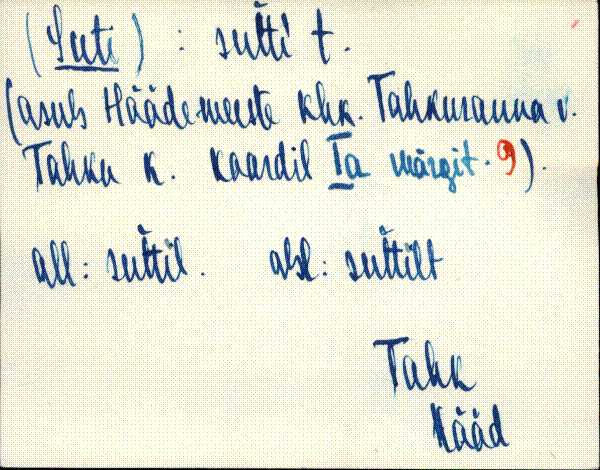 (Suti) : sutti t.
(asub Häädemeeste khk. Tahkuranna v.
Tahku k. kaardil Ta märgit. 9).
all: suttil. abl: suttilt
Tahk
Hääd